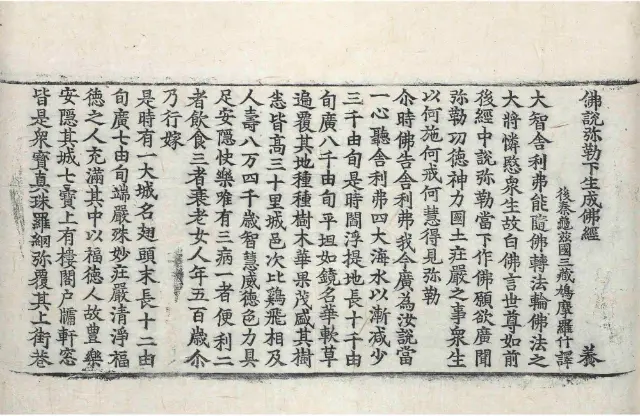 佛說弥勒下生成佛經 養
後秦龜玆國三藏鳩摩羅什譯
大智舍利弗能隨佛轉法輪佛法之
大將憐愍衆生故白佛言世尊如前
後經中說弥勒當下作佛願欲廣聞
弥勒功德神力國土莊嚴之事衆生
以何施何戒何慧得見弥勒
尒時佛告舍利弗我今廣為汝說當
一心聽舍利弗四大海水以漸減少
三千由旬是時閻浮提地長十千由
旬廣八千由旬平坦如鏡名華軟草
遍覆其地種種樹木華果茂盛其樹
悉皆高三十里城邑次比鷄飛相及
人壽八万四千歲智慧威德色力具
足安隱快樂唯有三病一者便利二
者飲食三者衰老女人年五百歲尒
乃行嫁
是時有一大城名翅頭末長十二由
旬廣七由旬端嚴殊妙莊嚴清淨福
德之人充滿其中以福德人故豊樂
安隱其城七寶上有樓閣户牖軒窓
皆是衆寶真珠羅網弥覆其上街巷